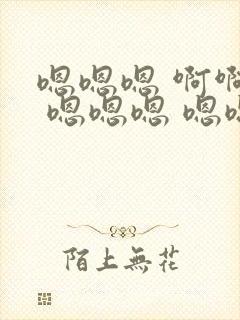 嗯嗯嗯 啊啊
嗯嗯嗯 嗯嗯
陌上無花